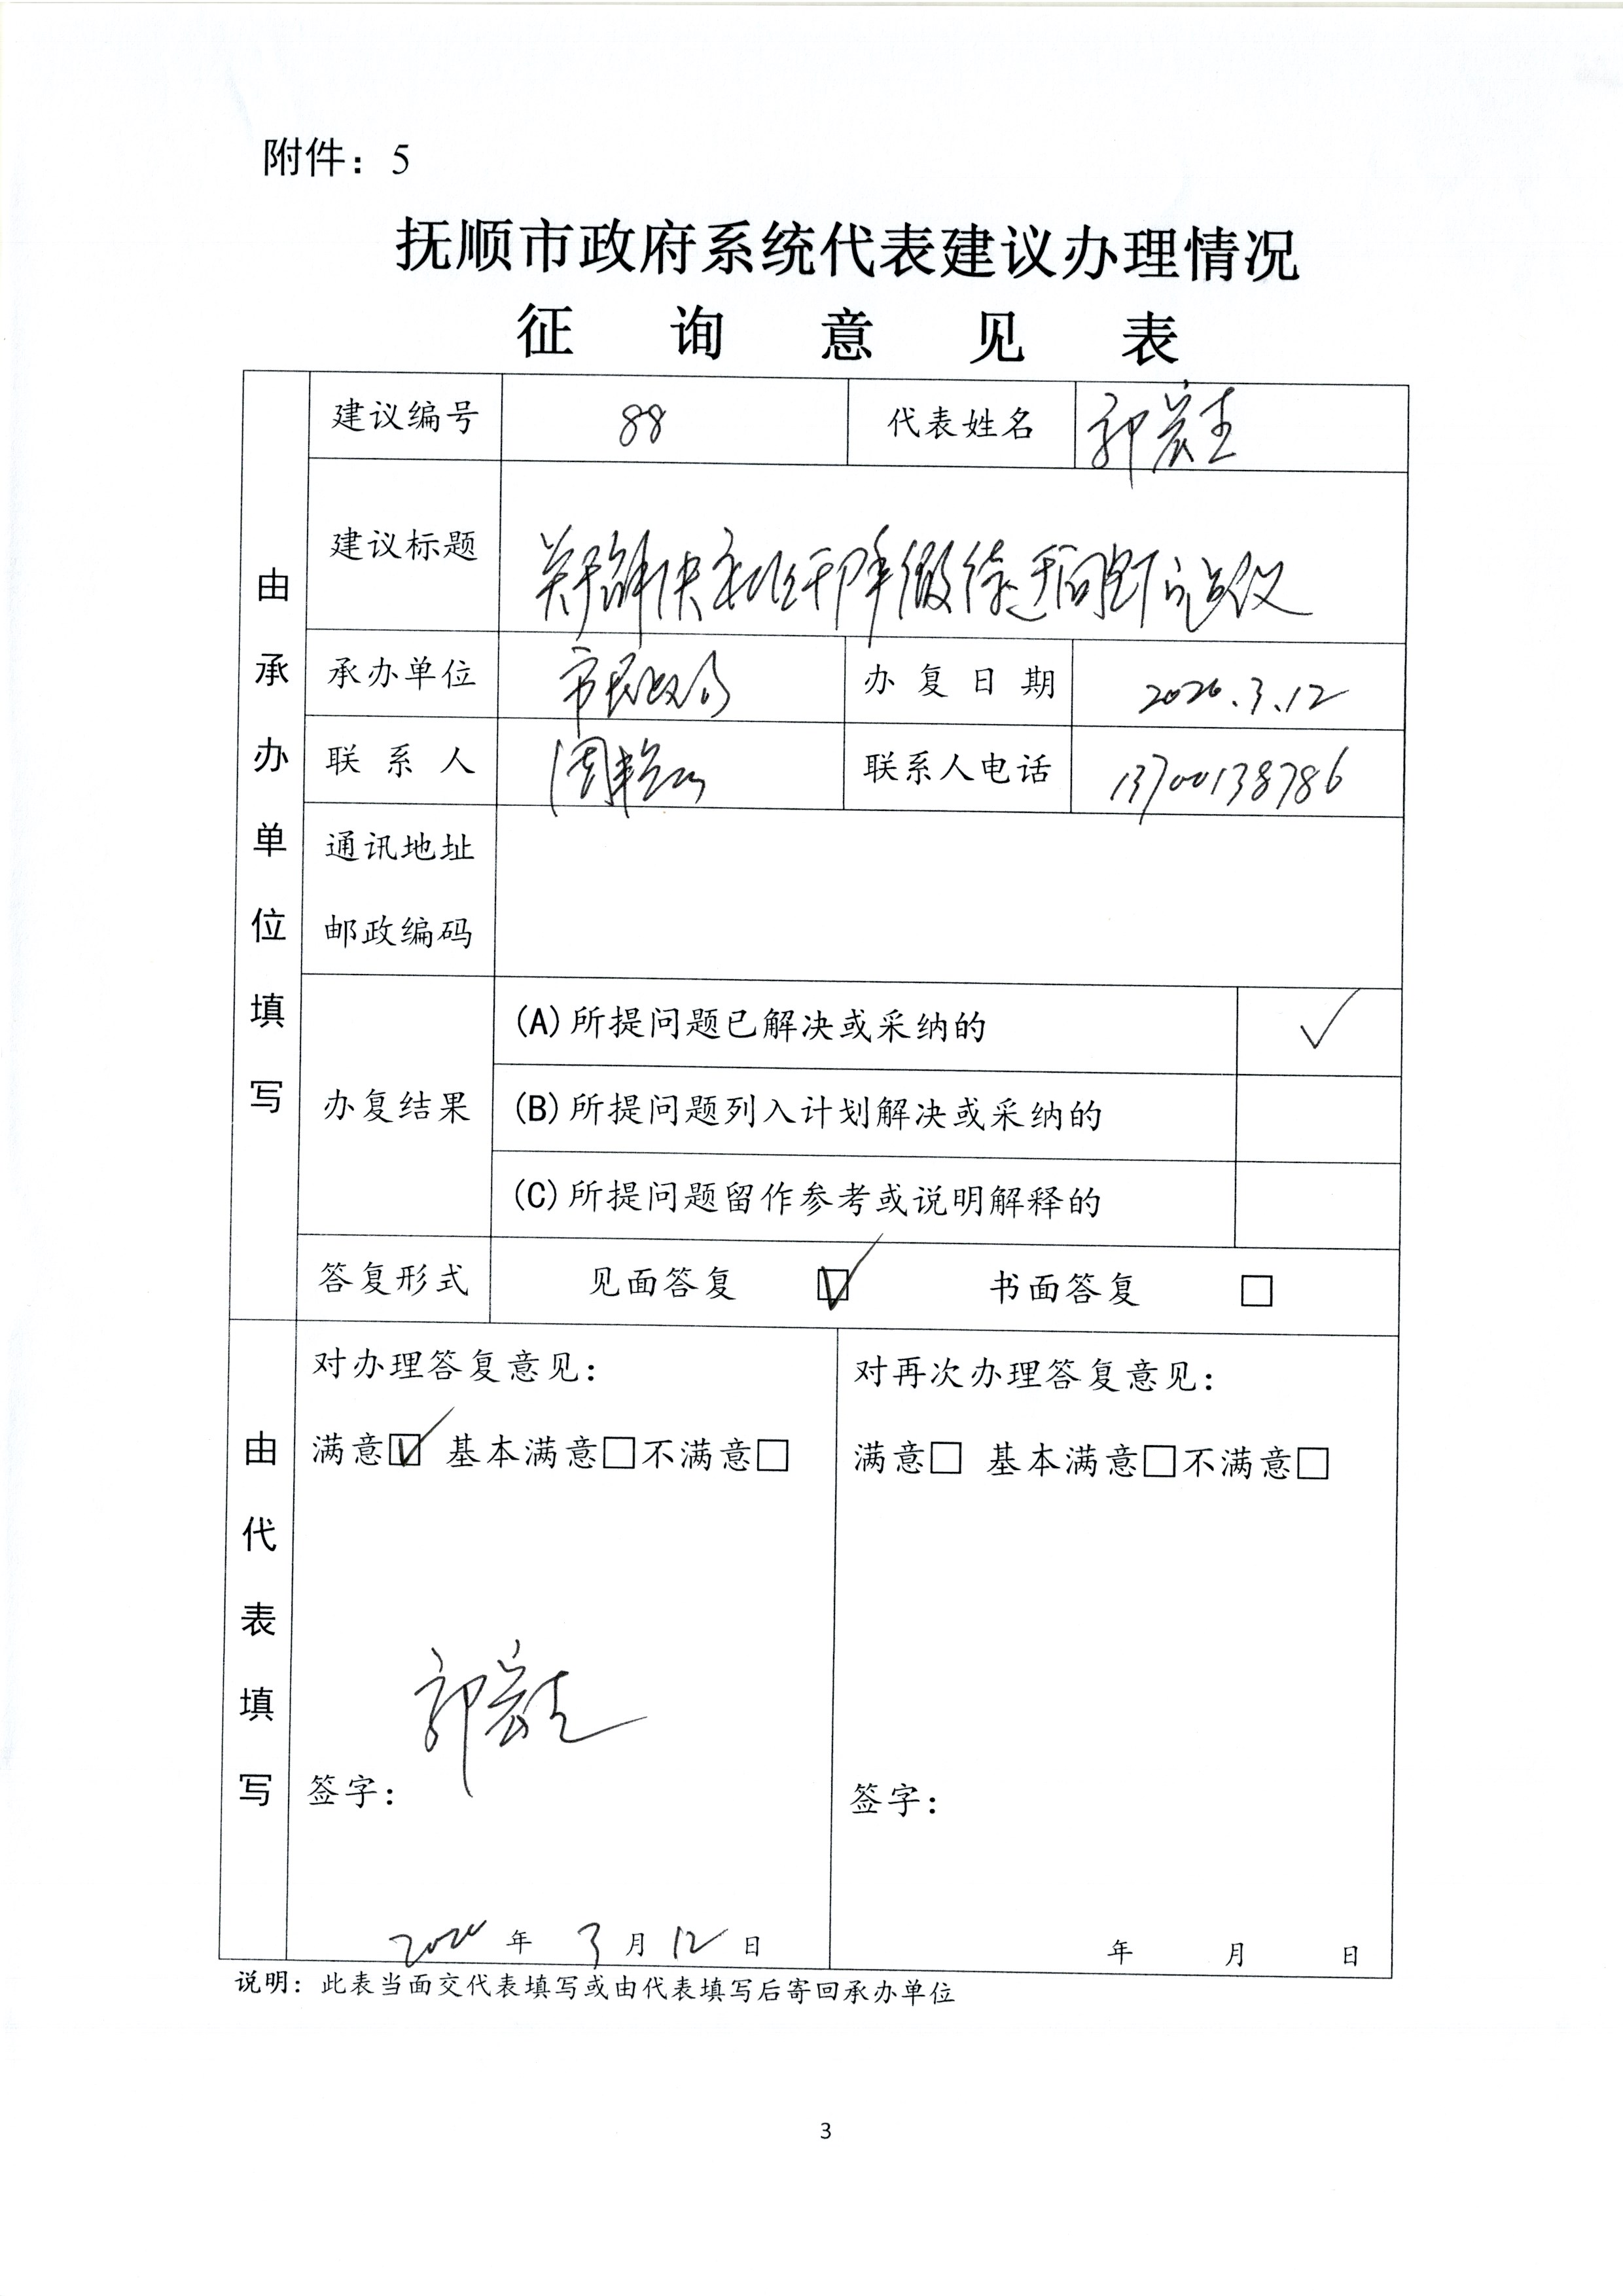 附件：5
抚顺市政府系统代表建议办理情况
征询意见表
由承办单位填写
建议编号 88 代表姓名 郭
建议标题 关于解决 待遇问题的建议
承办单位 市民政局 办复日期 2020.3.12
联系人 周 联系人电话 13700138786
通讯地址
邮政编码
办复结果
(A)所提问题已解决或采纳的 ✓
(B)所提问题列入计划解决或采纳的
(C)所提问题留作参考或说明解释的
答复形式 见面答复 ☑ 书面答复 □
由代表填写
对办理答复意见：
满意☑ 基本满意□不满意□
签字： 郭
2020年3月12日
对再次办理答复意见：
满意□ 基本满意□不满意□
签字：
年 月 日
说明：此表当面交代表填写或由代表填写后寄回承办单位
3